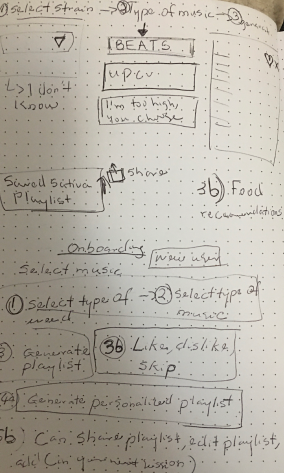 ① Select strain → ② Type of music → ③ generate
BEATS
↳ I don't
know
I'm too high,
you choose
share
Sativa
Playlist
3b) Food
recommendations
Onboarding
new user
Select music
① Select type of → ② Select type of
weed music
Generate
playlist
3b Like, dislike,
skip
Generate personalized playlist
b) Can share playlist, edit playlist,
add (in